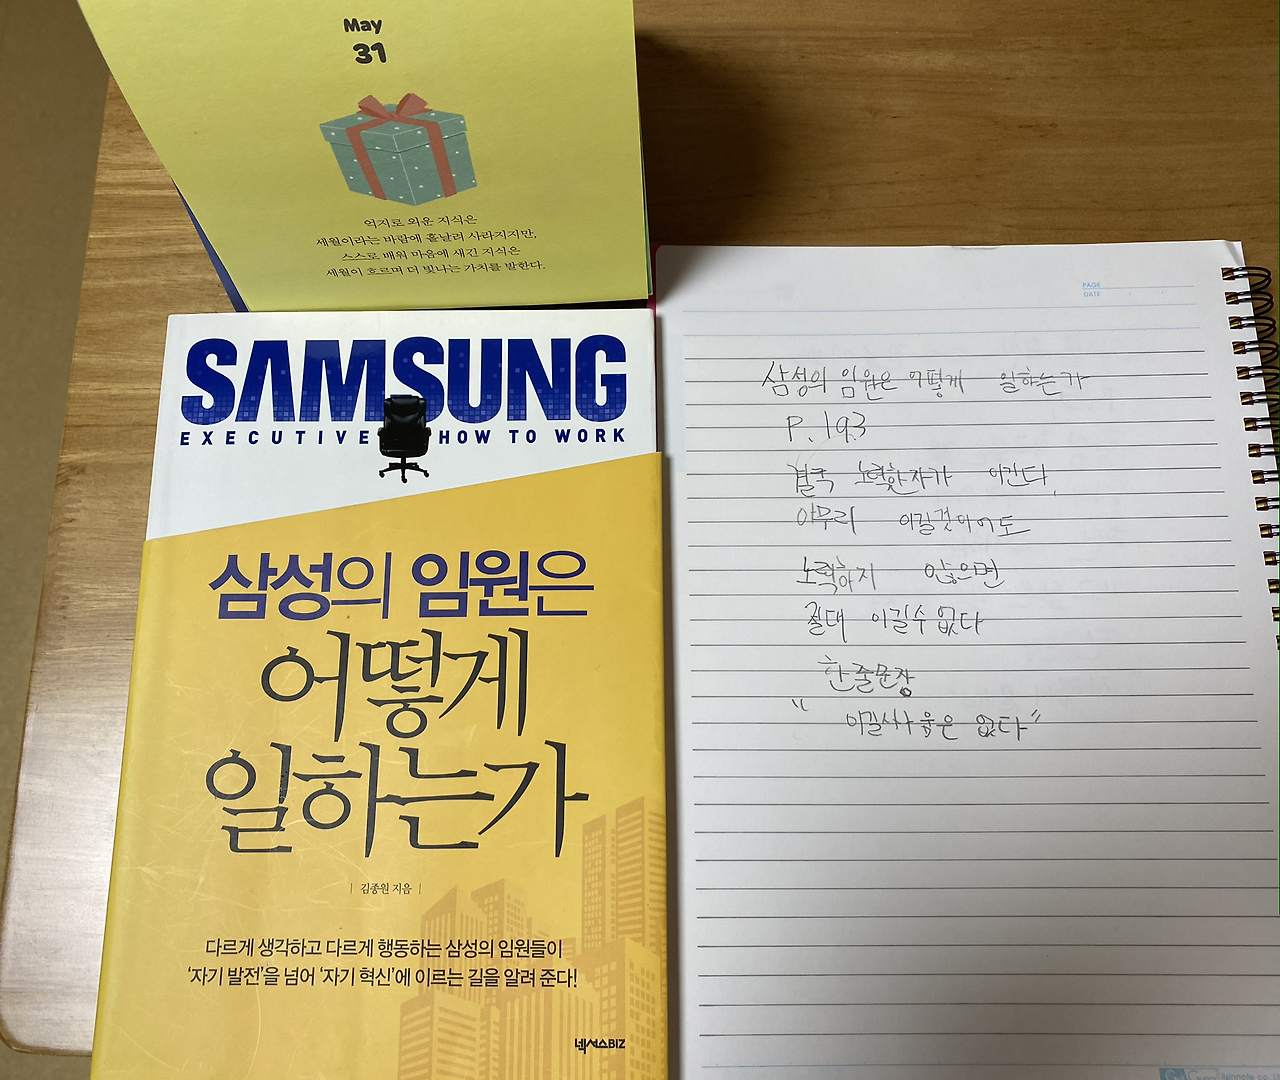 May
31
억지로 외운 지식은
세월이라는 바람에 흩날려 사라지지만,
스스로 배워 마음에 새긴 지식은
세월이 흐르며 더 빛나는 가치를 발한다.
SAMSUNG
EXECUTIVE HOW TO WORK
삼성의 임원은
어떻게
일하는가
| 김종원 지음 |
다르게 생각하고 다르게 행동하는 삼성의 임원들이
'자기 발전'을 넘어 '자기 혁신'에 이르는 길을 알려 준다!
넥서스BIZ
PAGE
DATE
삼성의 임원은 어떻게 일하는가
P. 193
결국 노력한자가 이긴다.
아무리 이길것이어도
노력하지 않으면
절대 이길수 없다
한줄문장
" 없다"